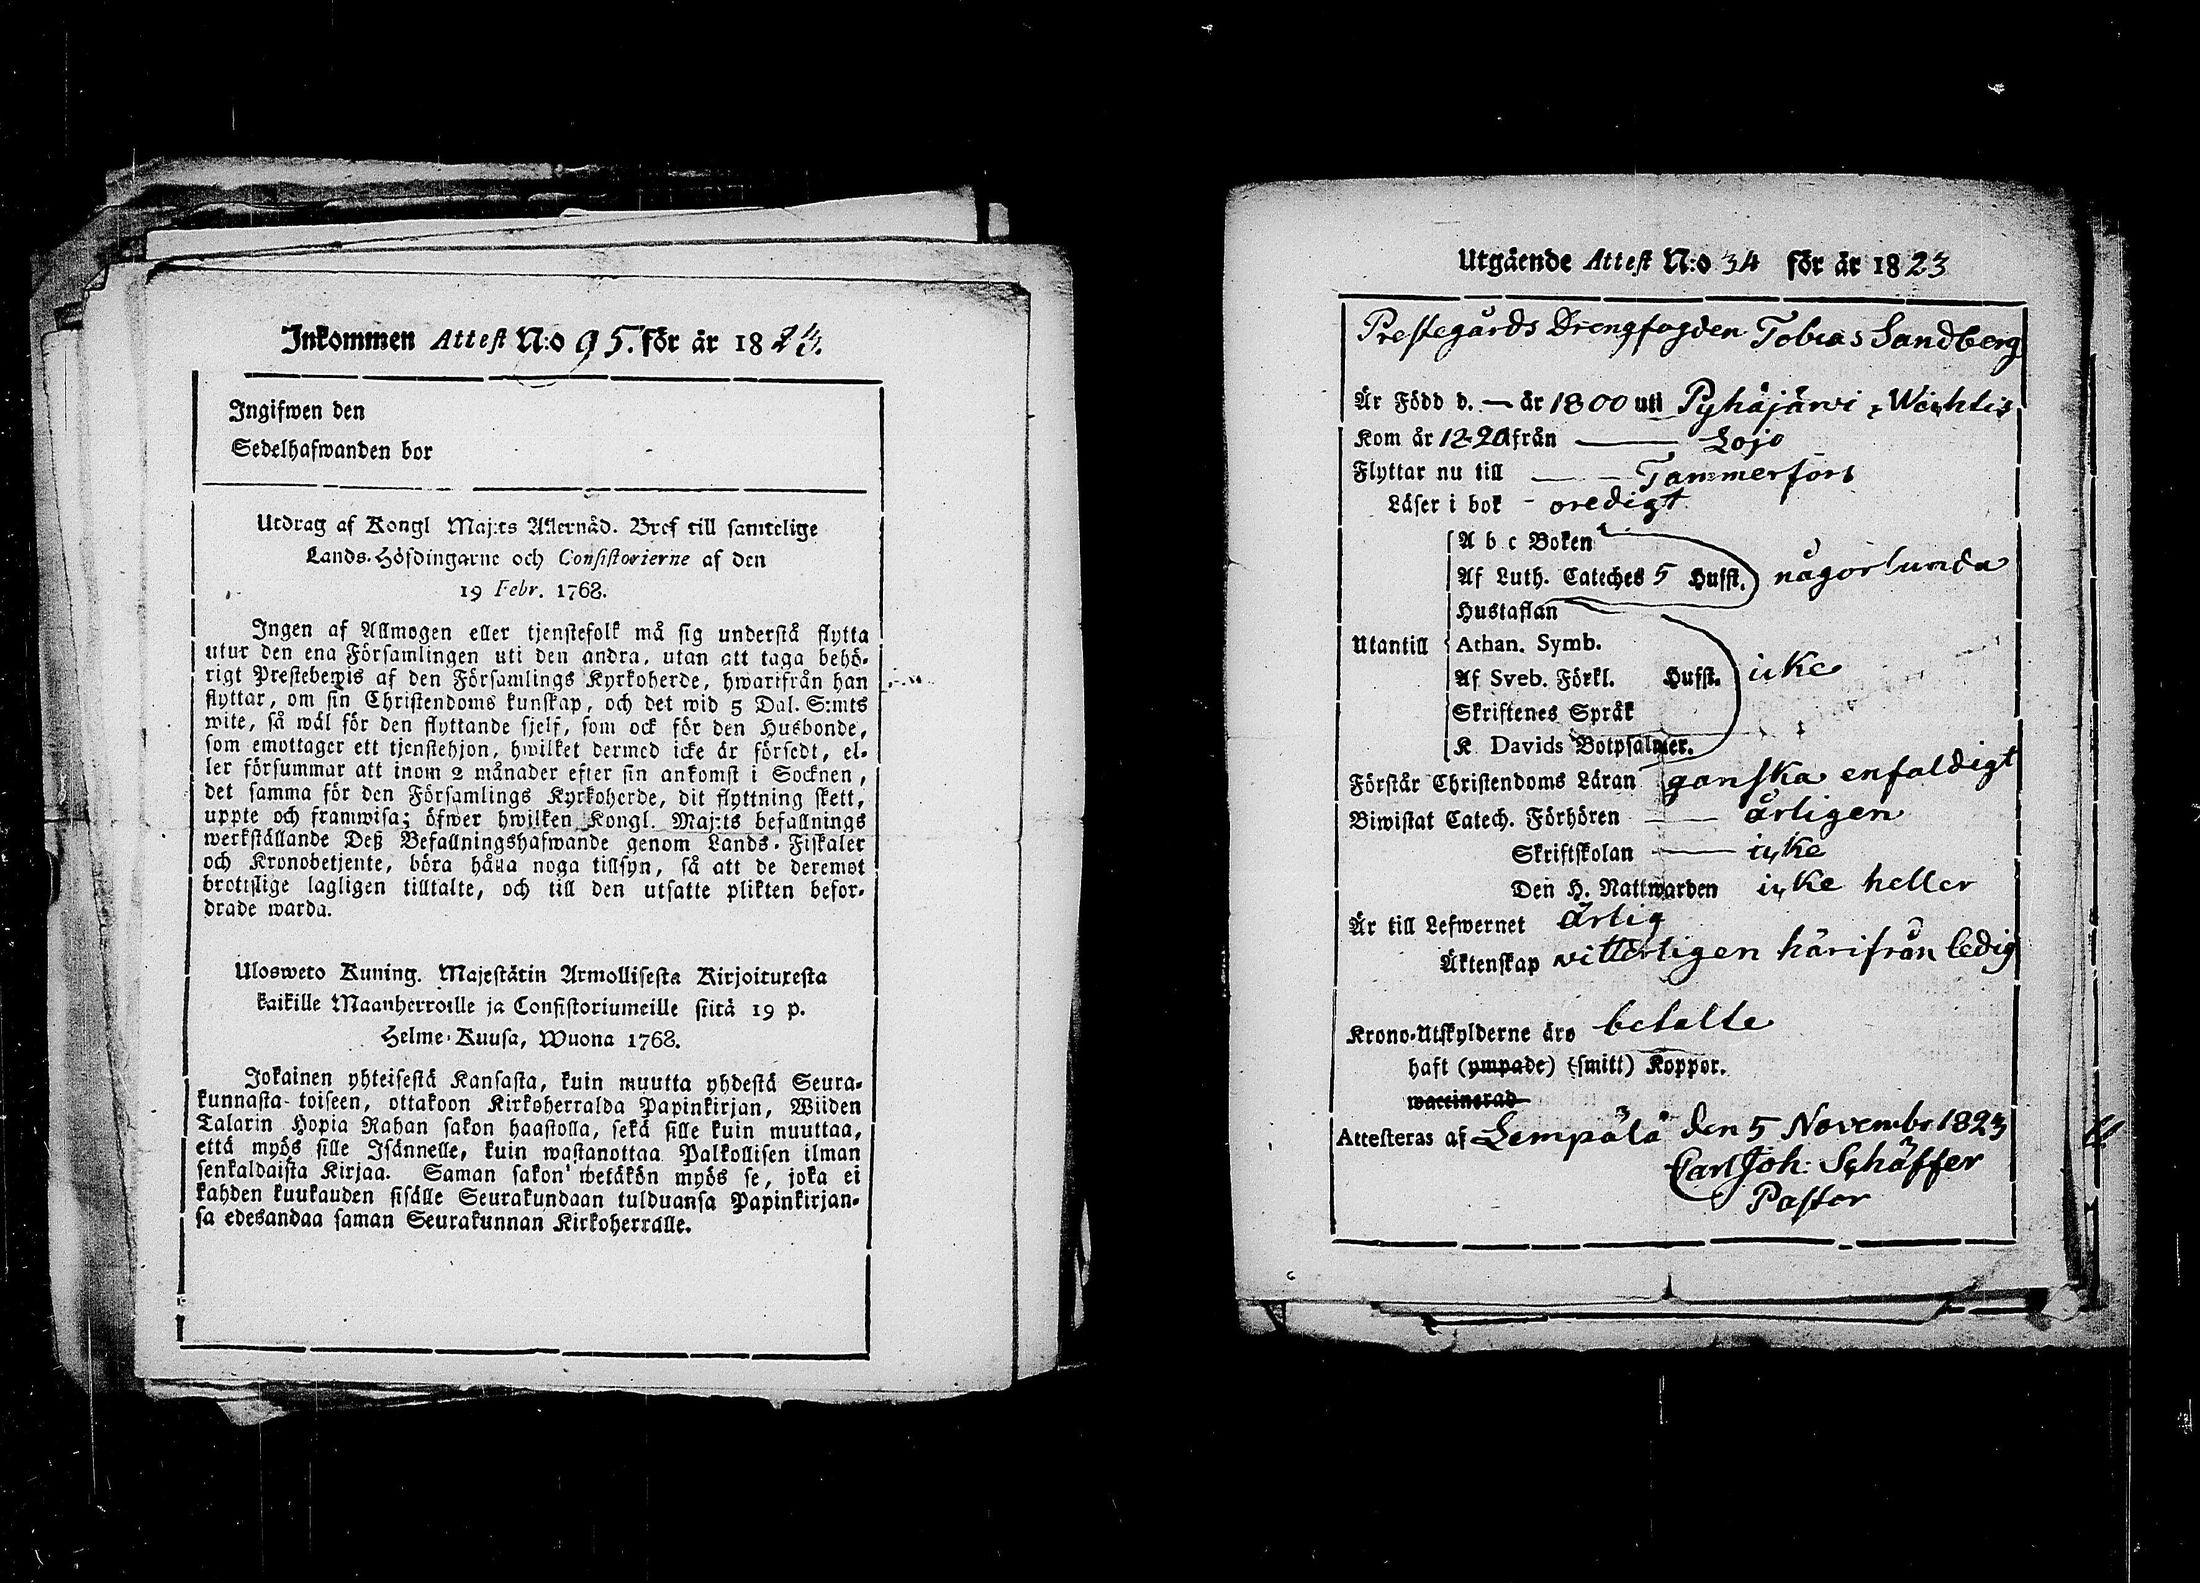 Inkommen Attest N:o 95. för år 1823.
Ingifwen den
Sedelhafwanden bor
Utdrag af Kongl Maj:ts Allernåd. Bref till samtelige
Lands-Höfdingarne och Consistorierne af den
19 Febr. 1768.
Ingen af Allmogen eller tjenstefolk må sig understå flytta
utur den ena Församlingen uti den andra, utan att taga behö-
rigt Prestebewis af den Församlings Kyrkoherde, hwarifrån han
flyttar, om sin Christendoms kunskap, och det wid 5 Dal. S:mts
wite, så wäl för den flyttande sjelf, som ock för den Husbonde,
som emottager ett tjenstehjon, hwilket dermed icke är försedt, el-
ler försummar att inom 2 månader efter sin ankomst i Socknen,
det samma för den Församlings Kyrkoherde, dit flyttning skett,
uppte och framwisa; öfwer hwilken Kongl. Maj:ts befallnings
werkställande Deß Befallningshafwande genom Lands-Fiskaler
och Kronobetjente, böra hålla noga tillsyn, så att de deremot
brottslige lagligen tilltalte, och till den utsatte plikten befor-
drade warda.
Ulosweto Kuning. Majestätin Armollisesta Kirjoituxesta
kaikille Maanherroille ja Consistoriumeille siitä 19 p.
Helme-Kuusa, Wuona 1768.
Jokainen yhteisestä Kansasta, kuin muutta yhdestä Seura-
kunnasta toiseen, ottakoon Kirkoherralda Papinkirjan, Wiiden
Talarin Hopia Rahan sakon haastolla, sekä sille kuin muuttaa,
että myös sille Isännelle, kuin wastanottaa Palkollisen ilman
senkaldaista Kirjaa. Saman sakon wetäkön myös se, joka ei
kahden kuukauden sisälle Seurakundaan tulduansa Papinkirjan-
sa edesandaa saman Seurakunnan Kirkoherralle.
Utgående Attest N:o 34 för år 1823
Prestegårds Drengfogden Tobias Sandberg
Är Född d. — år 1800 uti Pyhäjärvi, Wichtis
Kom år 1820 från — Lojo
Flyttar nu till — — Tammerfors
Läser i bok - oredigt
A b c Boken
Af Luth. Cateches 5 Hufst. någorlunda
Hustaflan
Utantill Athan. Symb.
Af Sveb. Förkl. Hufst. icke
Skriftenes Språk
K. Davids Botpsalmer.
Förstår Christendoms Läran ganska enfaldigt
Biwistat Catech. Förhören — årligen
Skriftskolan — icke
Den H. Nattwarden icke heller
Är till Lefwernet ärlig
Äktenskap vitterligen härifrån ledig
Krono-Utskylderne äro betalte
haft (ympade) (smitt) Koppor.
waccinerad
Attesteras af Lempälä den 5 Novembr 1823
Carl Joh: Schäffer
Pastor